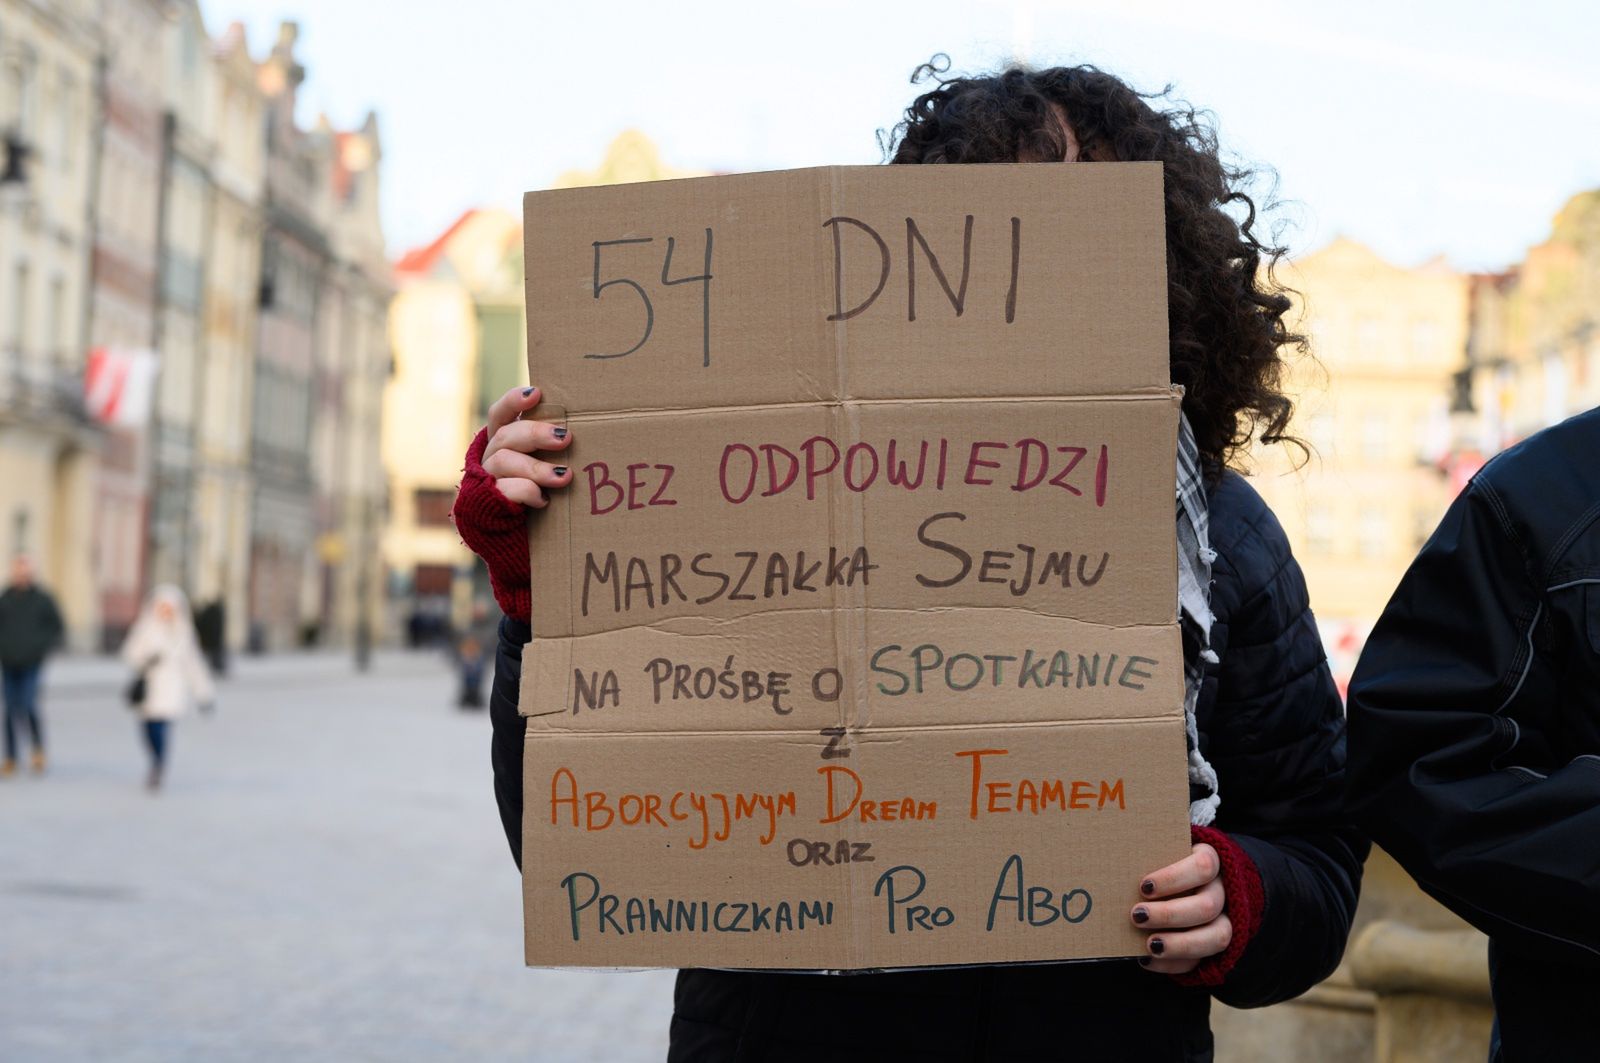 54 DNI
BEZ ODPOWIEDZI
MARSZAŁKA SEJMU
NA PROŚBĘ O SPOTKANIE
Z
ABORCYJNYM DREAM TEAMEM
ORAZ
PRAWNICZKAMI PRO ABO